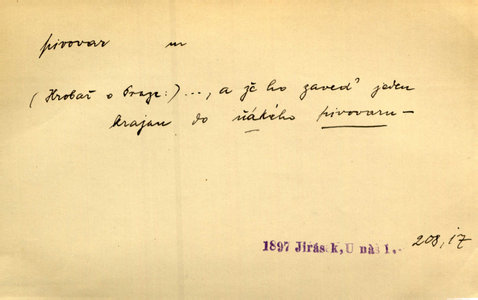 pivovar m
(Hrobař o Praze:) ..., a že ho zaved' jeden
krajan do ňákého pivovaru –
1897 Jirásek, U nás I. 208, 17